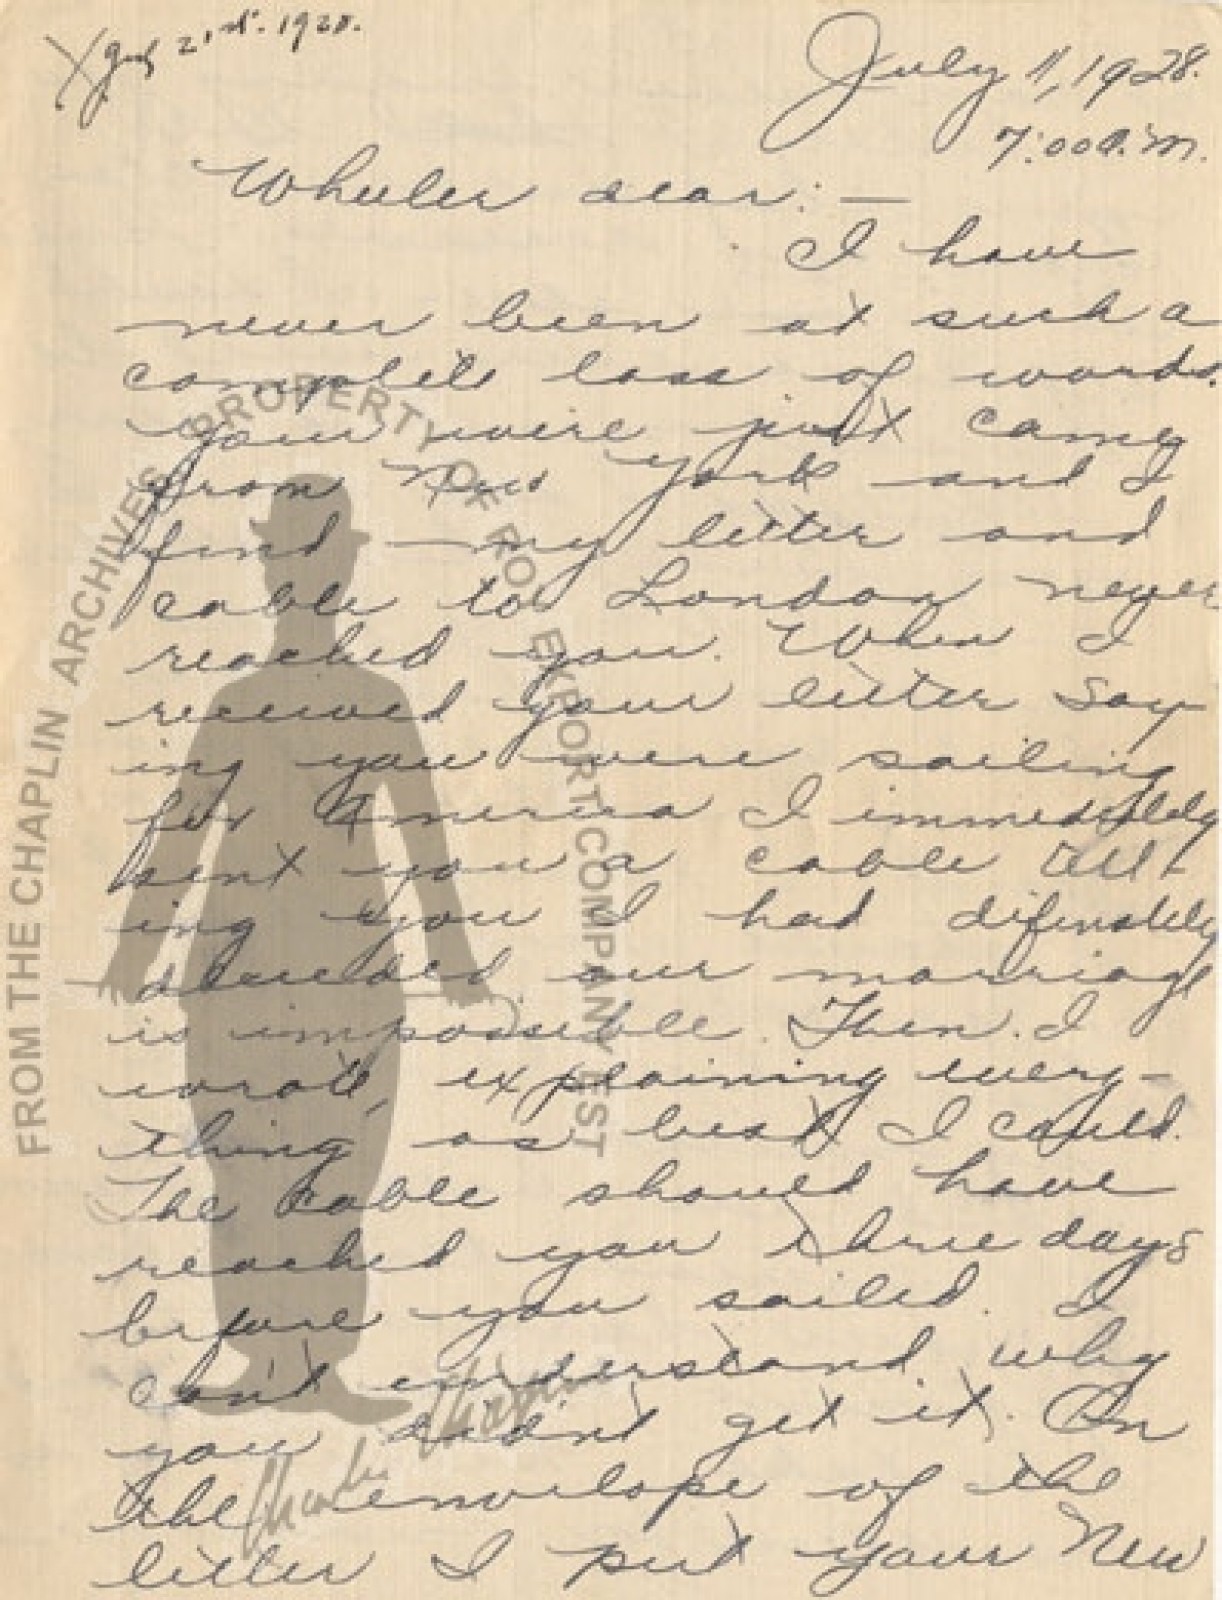 July 21st. 1928.
July 11, 1928.
7:00 P.M.
Wheeler dear: —
I have
never been at such a
complete loss of words.
Your wire just came
from New York and I
find my letter and
cable to London never
reached you. When I
received your letter say-
ing you were sailing
for America I immediately
sent you a cable tell-
ing you I had difinately
decided our marriage
is impossible. Then I
wrote, explaining every-
thing as best I could.
The cable should have
reached you three days
before you sailed. I
can't understand why
you didn't get it. On
the envelope of the
letter I put your New
FROM THE CHAPLIN ARCHIVES PROPERTY OF ROY EXPORT COMPANY EST
Charles Chaplin